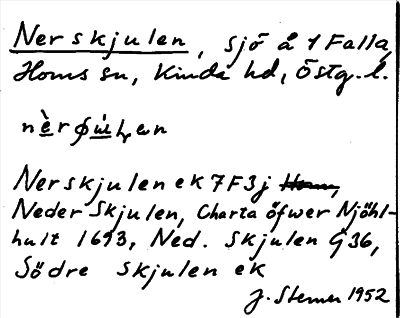 Nerskjulen, sjö å 1 Falla,
Horns sn, Kinda hd, Östg. l.
Nerskjulen ek 7F3j Horn,
Neder Skjulen, Charta öfwer Njöhl-
hult 1693, Ned. Skjulen G36,
Södre Skjulen ek
J. Sterner 1952